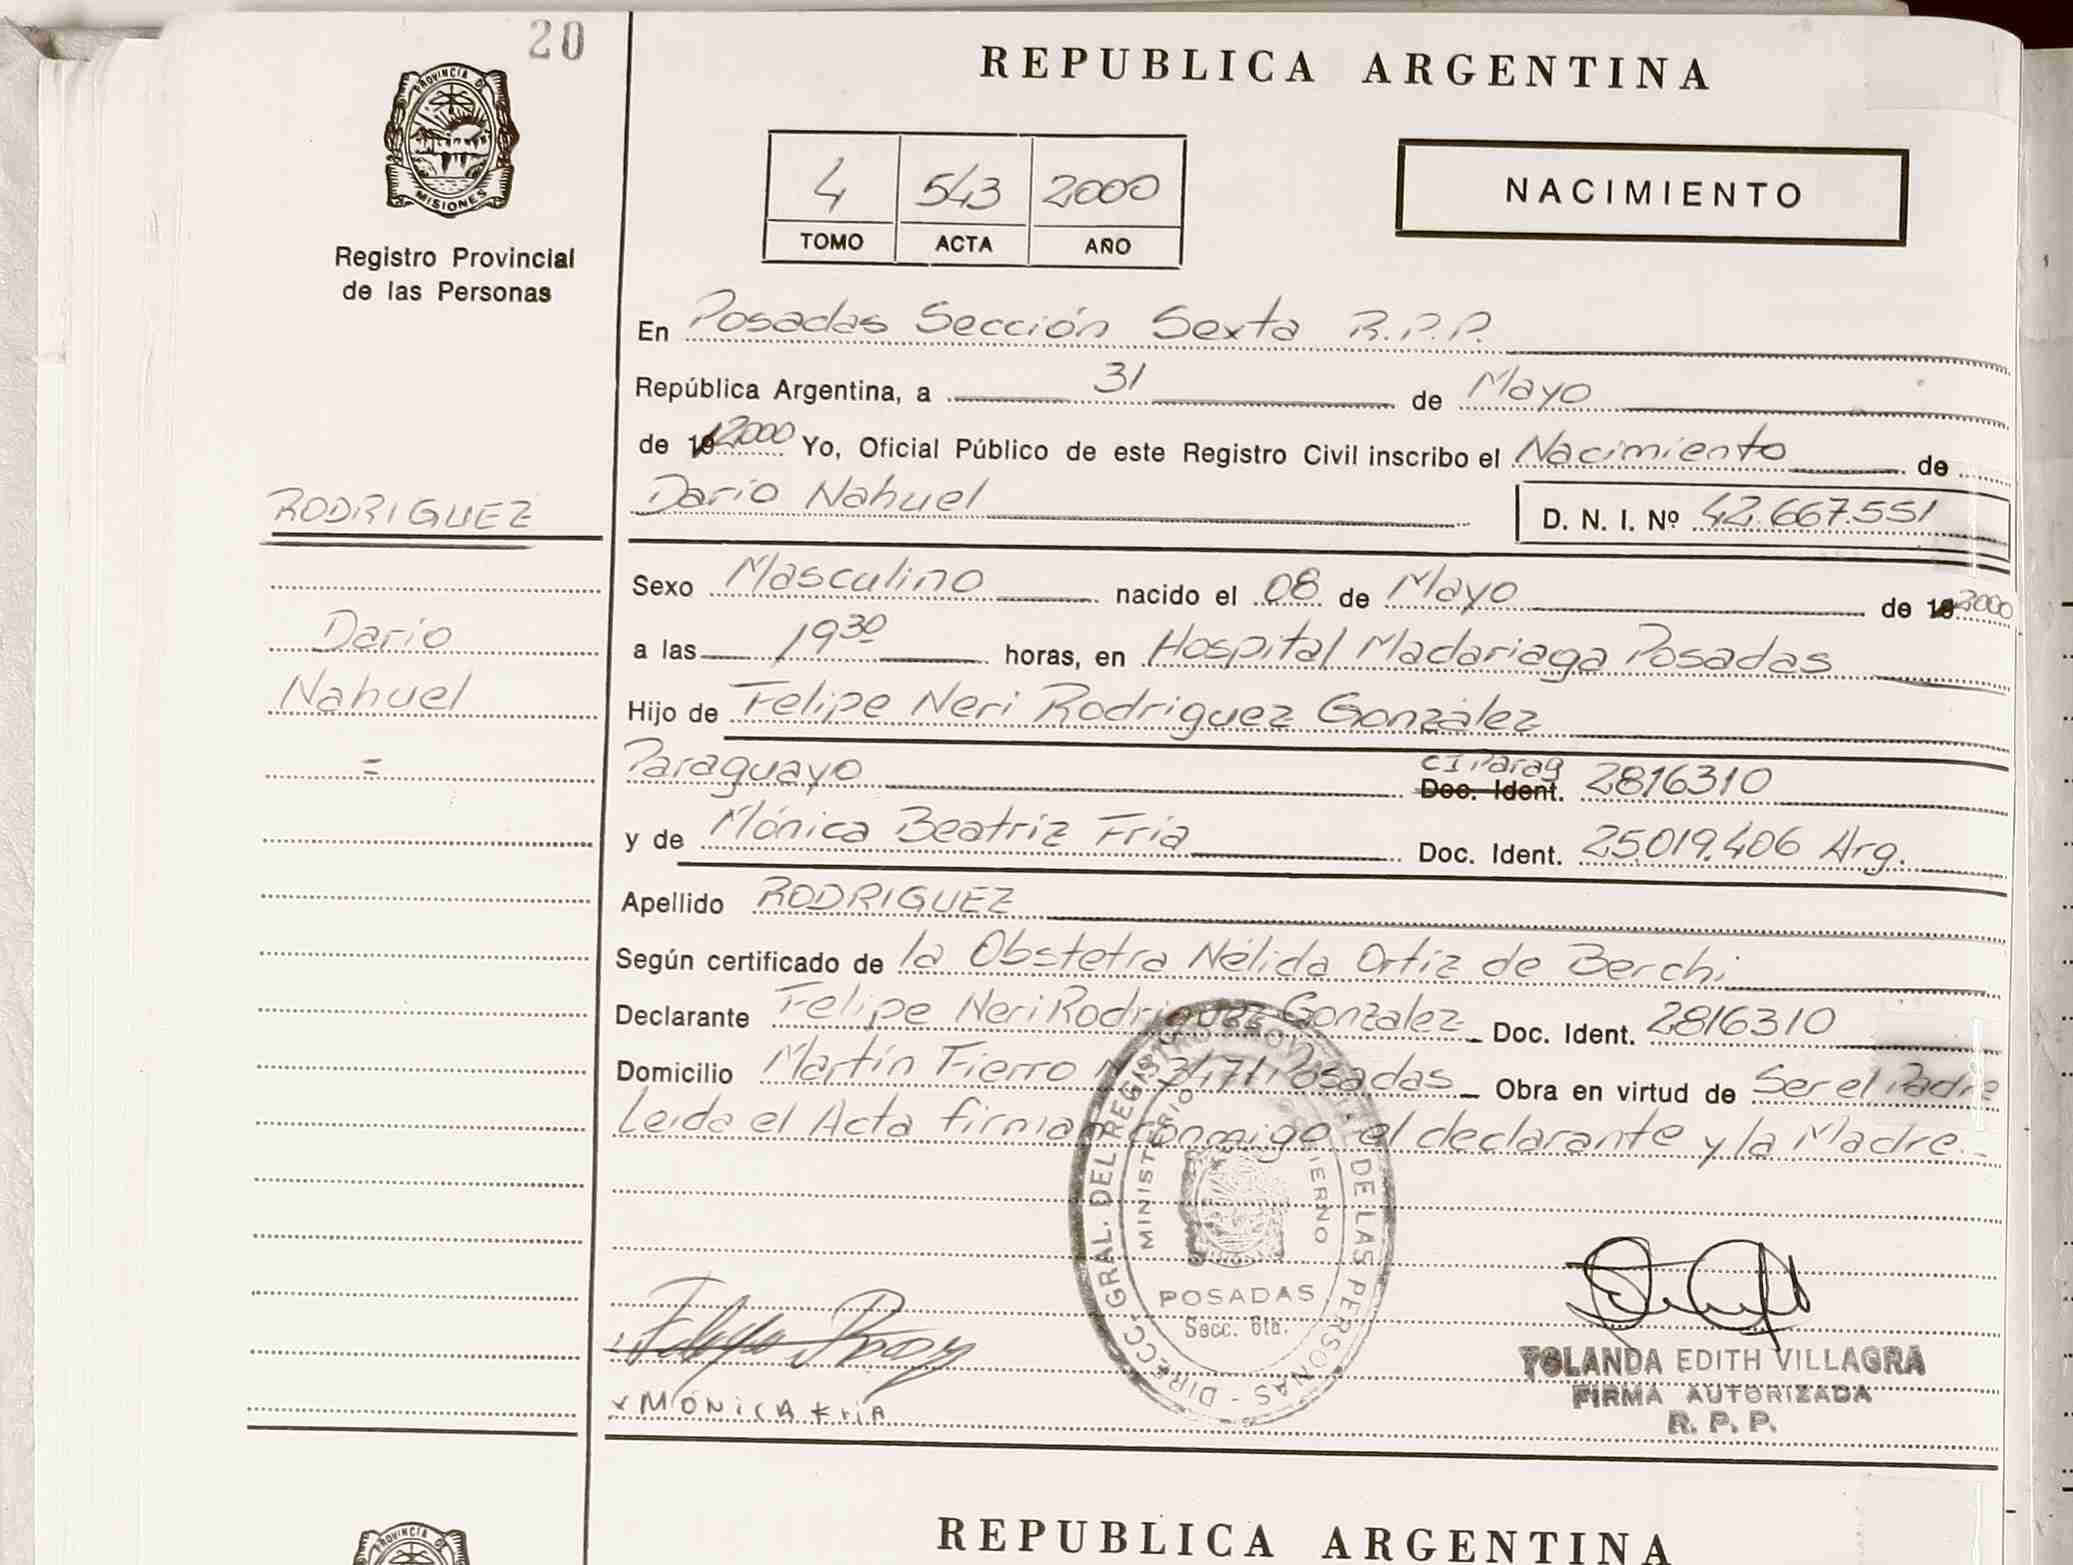 20
PROVINCIA DE
MISIONES
Registro Provincial
de las Personas
REPUBLICA ARGENTINA
4 543 2000
TOMO ACTA AÑO
NACIMIENTO
En Posadas Sección Sexta R.P.P.
República Argentina, a 31 de Mayo
de 19 2000 Yo, Oficial Público de este Registro Civil inscribo el Nacimiento de
RODRIGUEZ
Dario Nahuel D. N. I. Nº 42.667.551
Sexo Masculino nacido el 08 de Mayo de 19 2000
Dario
a las 19 30 horas, en Hospital Madariaga Posadas
Nahuel
Hijo de Felipe Neri Rodriguez González
=
Paraguayo CI Parag Doc. Ident. 2816310
y de Mónica Beatriz Fria Doc. Ident. 25.019.406 Arg.
Apellido RODRIGUEZ
Según certificado de la Obstetra Nélida Ortiz de Berchi
Declarante Felipe Neri Rodriguez Gonzalez Doc. Ident. 2816310
Domicilio Martín Fierro Nº 3471 Posadas Obra en virtud de Ser el Padre
Leída el Acta firman conmigo el declarante y la Madre.
DIRECC. GRAL. DEL REGISTRO DE LAS PERSONAS
MINISTERIO GOBIERNO
POSADAS
Secc. 6ta.
x MÓNICA FríA
YOLANDA EDITH VILLAGRA
FIRMA AUTORIZADA
R. P. P.
PROVINCIA DE
REPUBLICA ARGENTINA